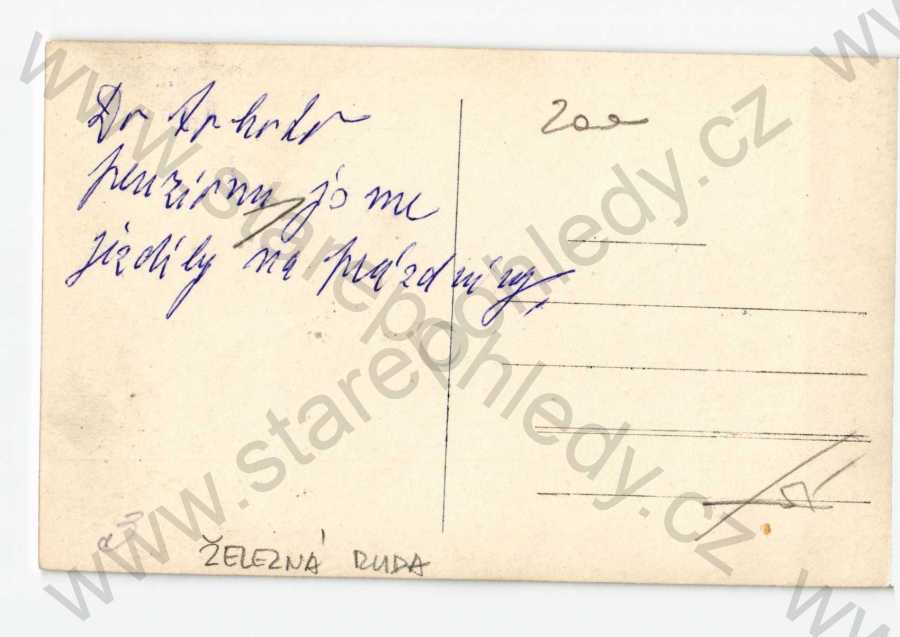 Do tohoto
penzionu jsme
jezdily na prázdniny,
200
ŽELEZNÁ RUDA
www.starepohledy.cz
www.starepohledy.cz